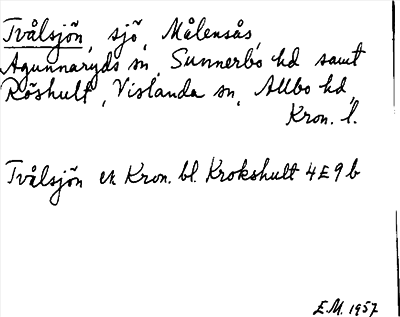 Tvålsjön, sjö, Målensås,
Agunnaryds sn, Sunnerbo hd samt
Röshult, Vislanda sn, Allbo hd,
Kron. l.
Tvålsjön ek Kron. bl. Krokshult 4E9b
E.M. 1957